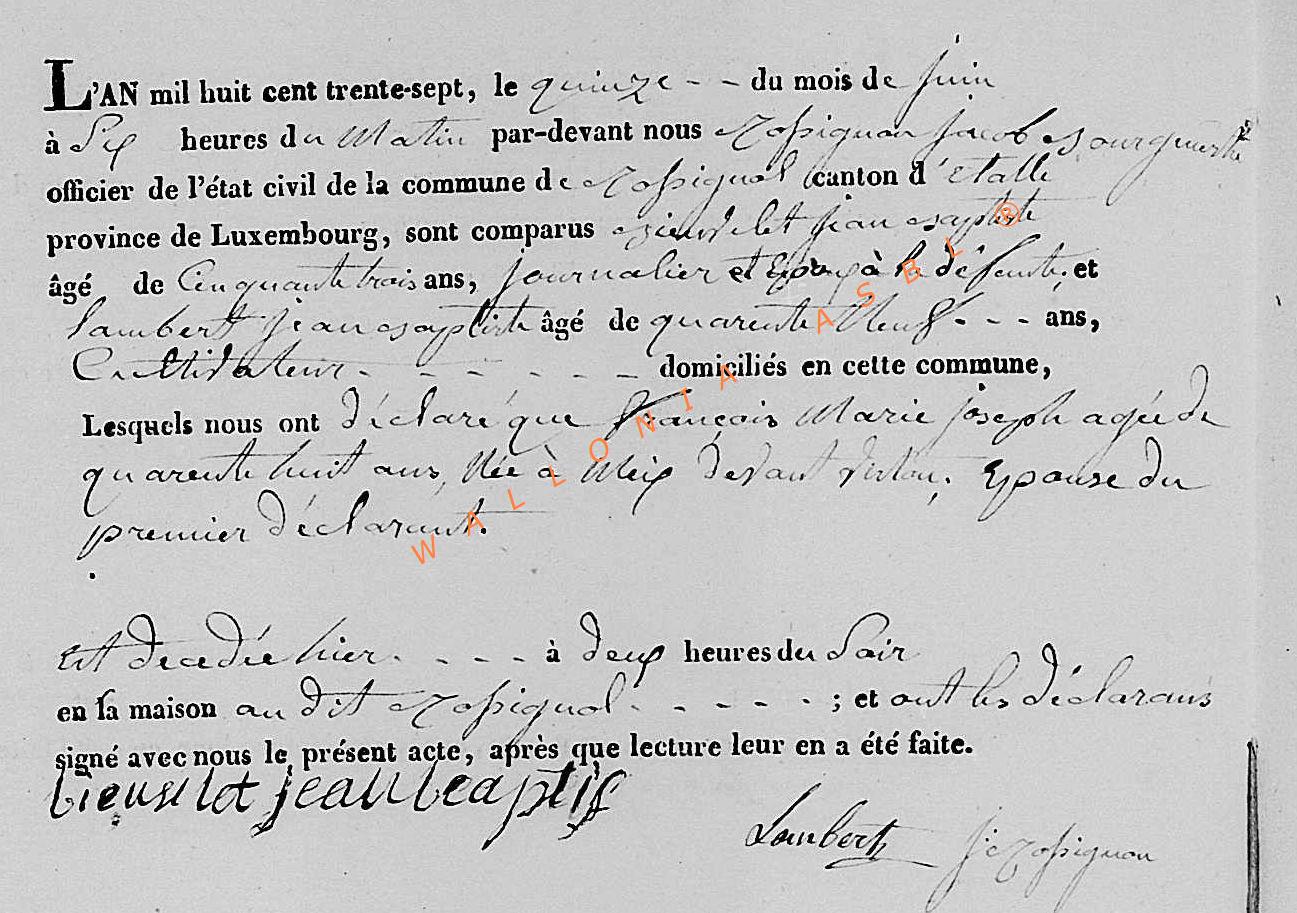 L'AN mil huit cent trente-sept, le quinze - - du mois de juin
à Six heures du Matin par-devant nous Rossignon jacob Bourguestre
officier de l'état civil de la commune de Rossignol canton d'étalle
province de Luxembourg, sont comparus jean Baptiste
âgé de Cinquante trois ans, journalier et Epoux à la défunte, et
lambert jean Baptiste âgé de quarente Neuf - - - ans,
Cultivateur - - - - - - domiciliés en cette commune,
Lesquels nous ont déclaré que François Marie joseph agée de
quarente huit ans, Née à Meix devant virton, Epouse du
premier déclarant.
Est décédée hier - - - - à deux heures du Soir
en sa maison au dit Rossignol - - - - - ; et ont les déclarans
signé avec nous le présent acte, après que lecture leur en a été faite.
jean beaptis
Lambert J: Rossignon
WALLONIA ASBL ®